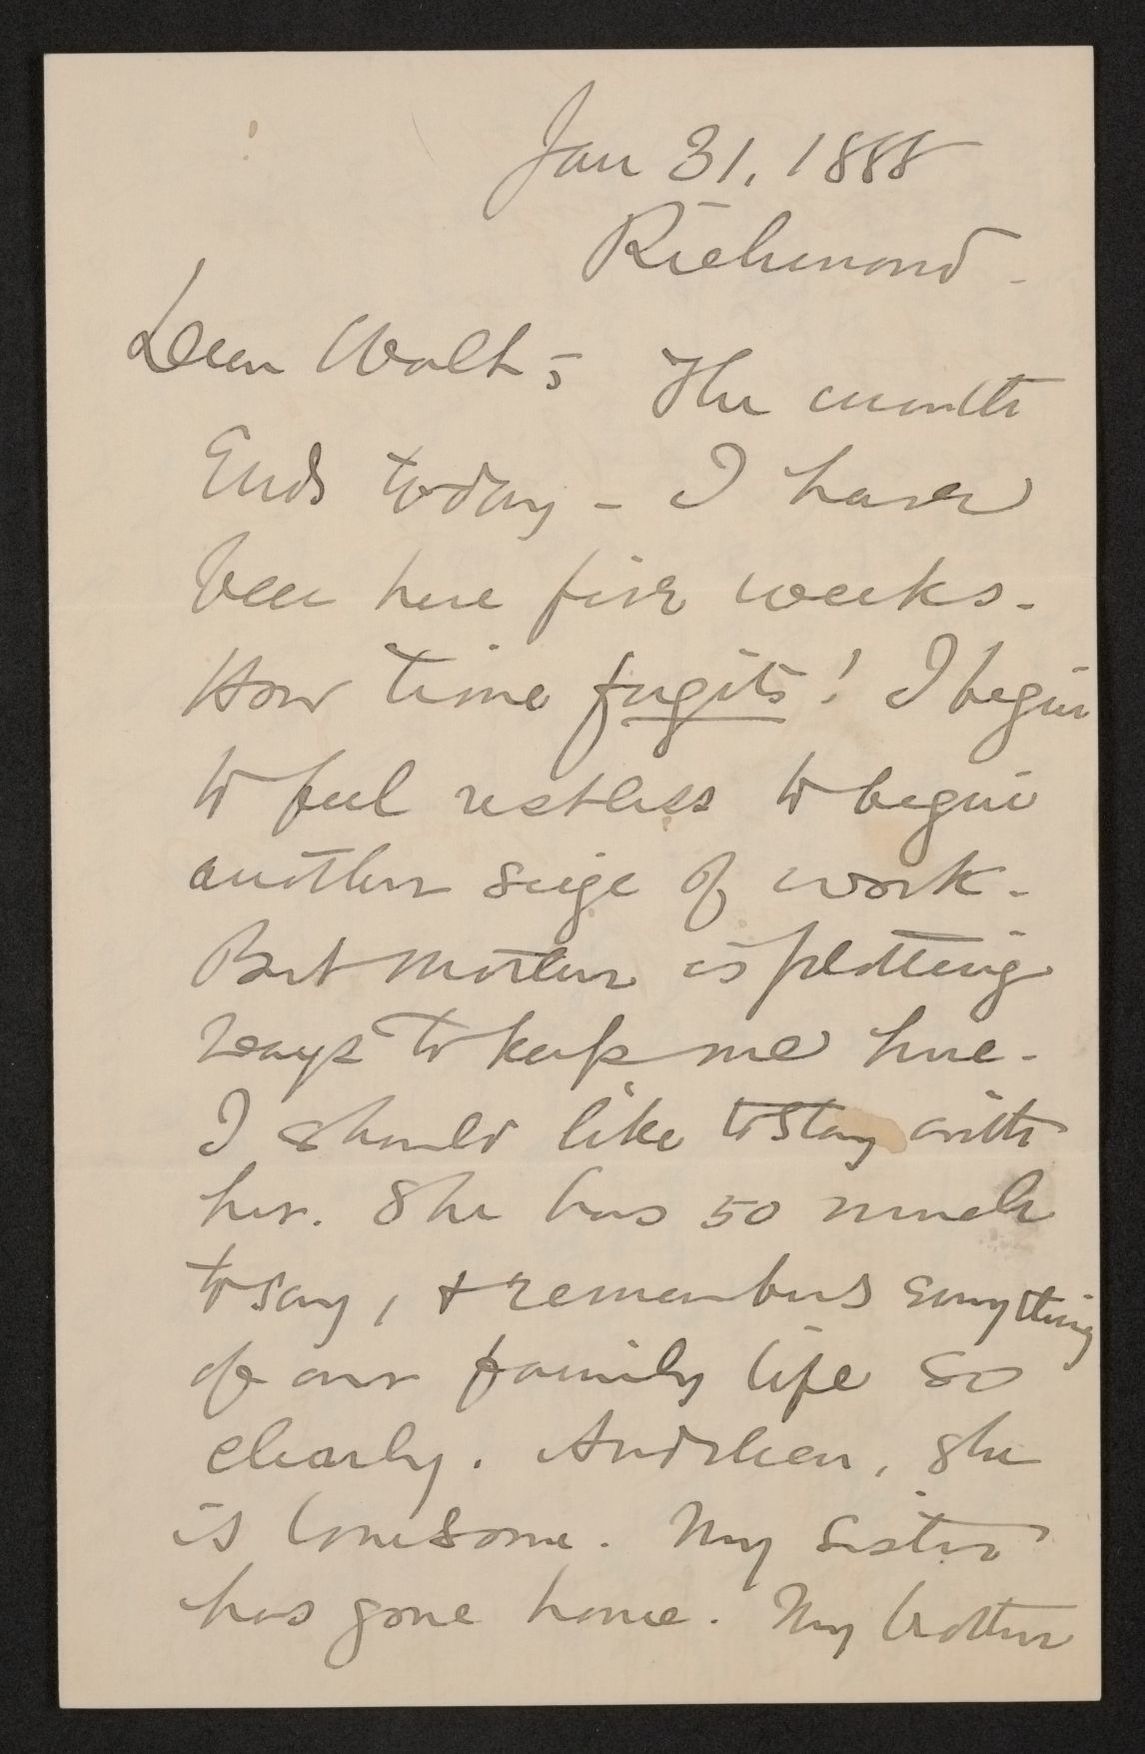 Jan 31, 1888
Richmond -
Dear Walt; The month
Ends today - I have
been here five weeks -
How time fugits! I begin
to feel restless to begin
another seige of work -
But mother is plotting
ways to keep me here -
I should like to stay with
her. She has so much
to say, & remembers everything
of our family life so
clearly. And then, she
is lonesome. My sister
has gone home. My brother